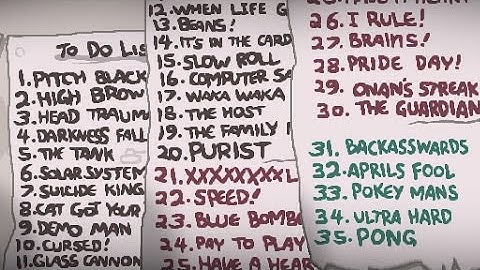 To Do Lis
1. PITCH BLACK
2. HIGH BROW
3. HEAD TRAUMA
4. DARKNESS FALL
5. THE TANK
6. SOLAR SYSTEM
7. SUICIDE KING
8. CAT GOT YOUR
9. DEMO MAN
10. CURSED!
11. GLASS CANNON
12. WHEN LIFE G
13. BEANS!
14. IT'S IN THE CARD
15. SLOW ROLL
16. COMPUTER SA
17. WAKA WAKA
18. THE HOST
19. THE FAMILY
20. PURIST
21. XXXXXXXXL
22. SPEED!
23. BLUE BOMBE
24. PAY TO PLAY
25. HAVE A HEAR
26. I RULE!
27. BRAINS!
28. PRIDE DAY!
29. ONAN'S STREAK
30. THE GUARDIAN
31. BACKASSWARDS
32. APRILS FOOL
33. POKEY MANS
34. ULTRA HARD
35. PONG